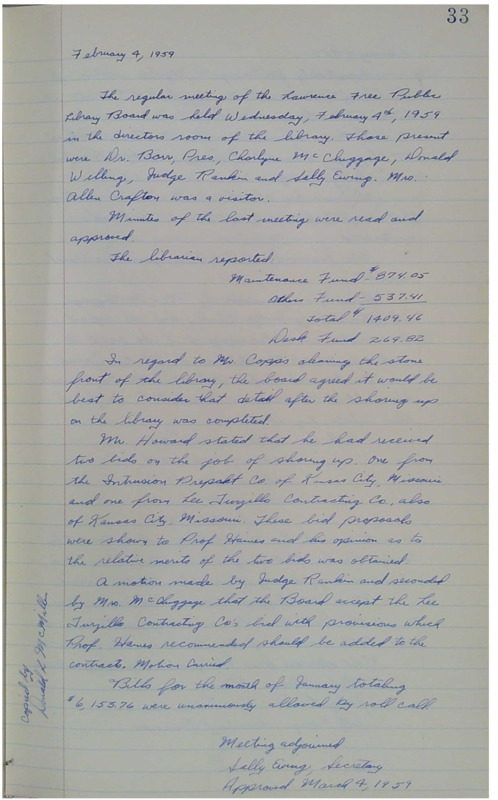 33
February 4, 1959
The regular meeting of the Lawrence Free Public
Library Board was held Wednesday, February 4th, 1959
in the directors room of the library. Those present
were Dr. Barr, Pres, Charlyne McCluggage, Donald
Welling, Judge Rankin and Sally Ewing. Mrs.
Allen Crafton was a visitor.
Minutes of the last meeting were read and
approved.
The librarian reported
Maintenance Fund - $874.05
Others Fund - 537.41
Total $1409.46
Desk Fund 269.82
In regard to Mr. Copps cleaning the stone
front of the library, the board agreed it would be
best to consider that detail after the shoring up
on the library was completed.
Mr. Howard stated that he had received
two bids on the job of shoring up. One from
the Intrusion Prepakt Co. of Kansas City, Missouri
and one from Lee Turzillo Contracting Co, also
of Kansas City, Missouri. These bid proposals
were shown to Prof Hames and his opinion as to
the relative merits of the two bids was obtained.
A motion made by Judge Rankin and seconded
by Mrs. McCluggage that the Board accept the Lee
Turzillo Contracting Co's bid with provisions which
Prof. Hames recommended should be added to the
contracts. Motion Carried.
Bills for the month of January totaling
$6,153.76 were unanimously allowed by roll call.
Meeting adjourned
Sally Ewing, Secretary
Approved March 4, 1959
copied by
Donald L. McMillin